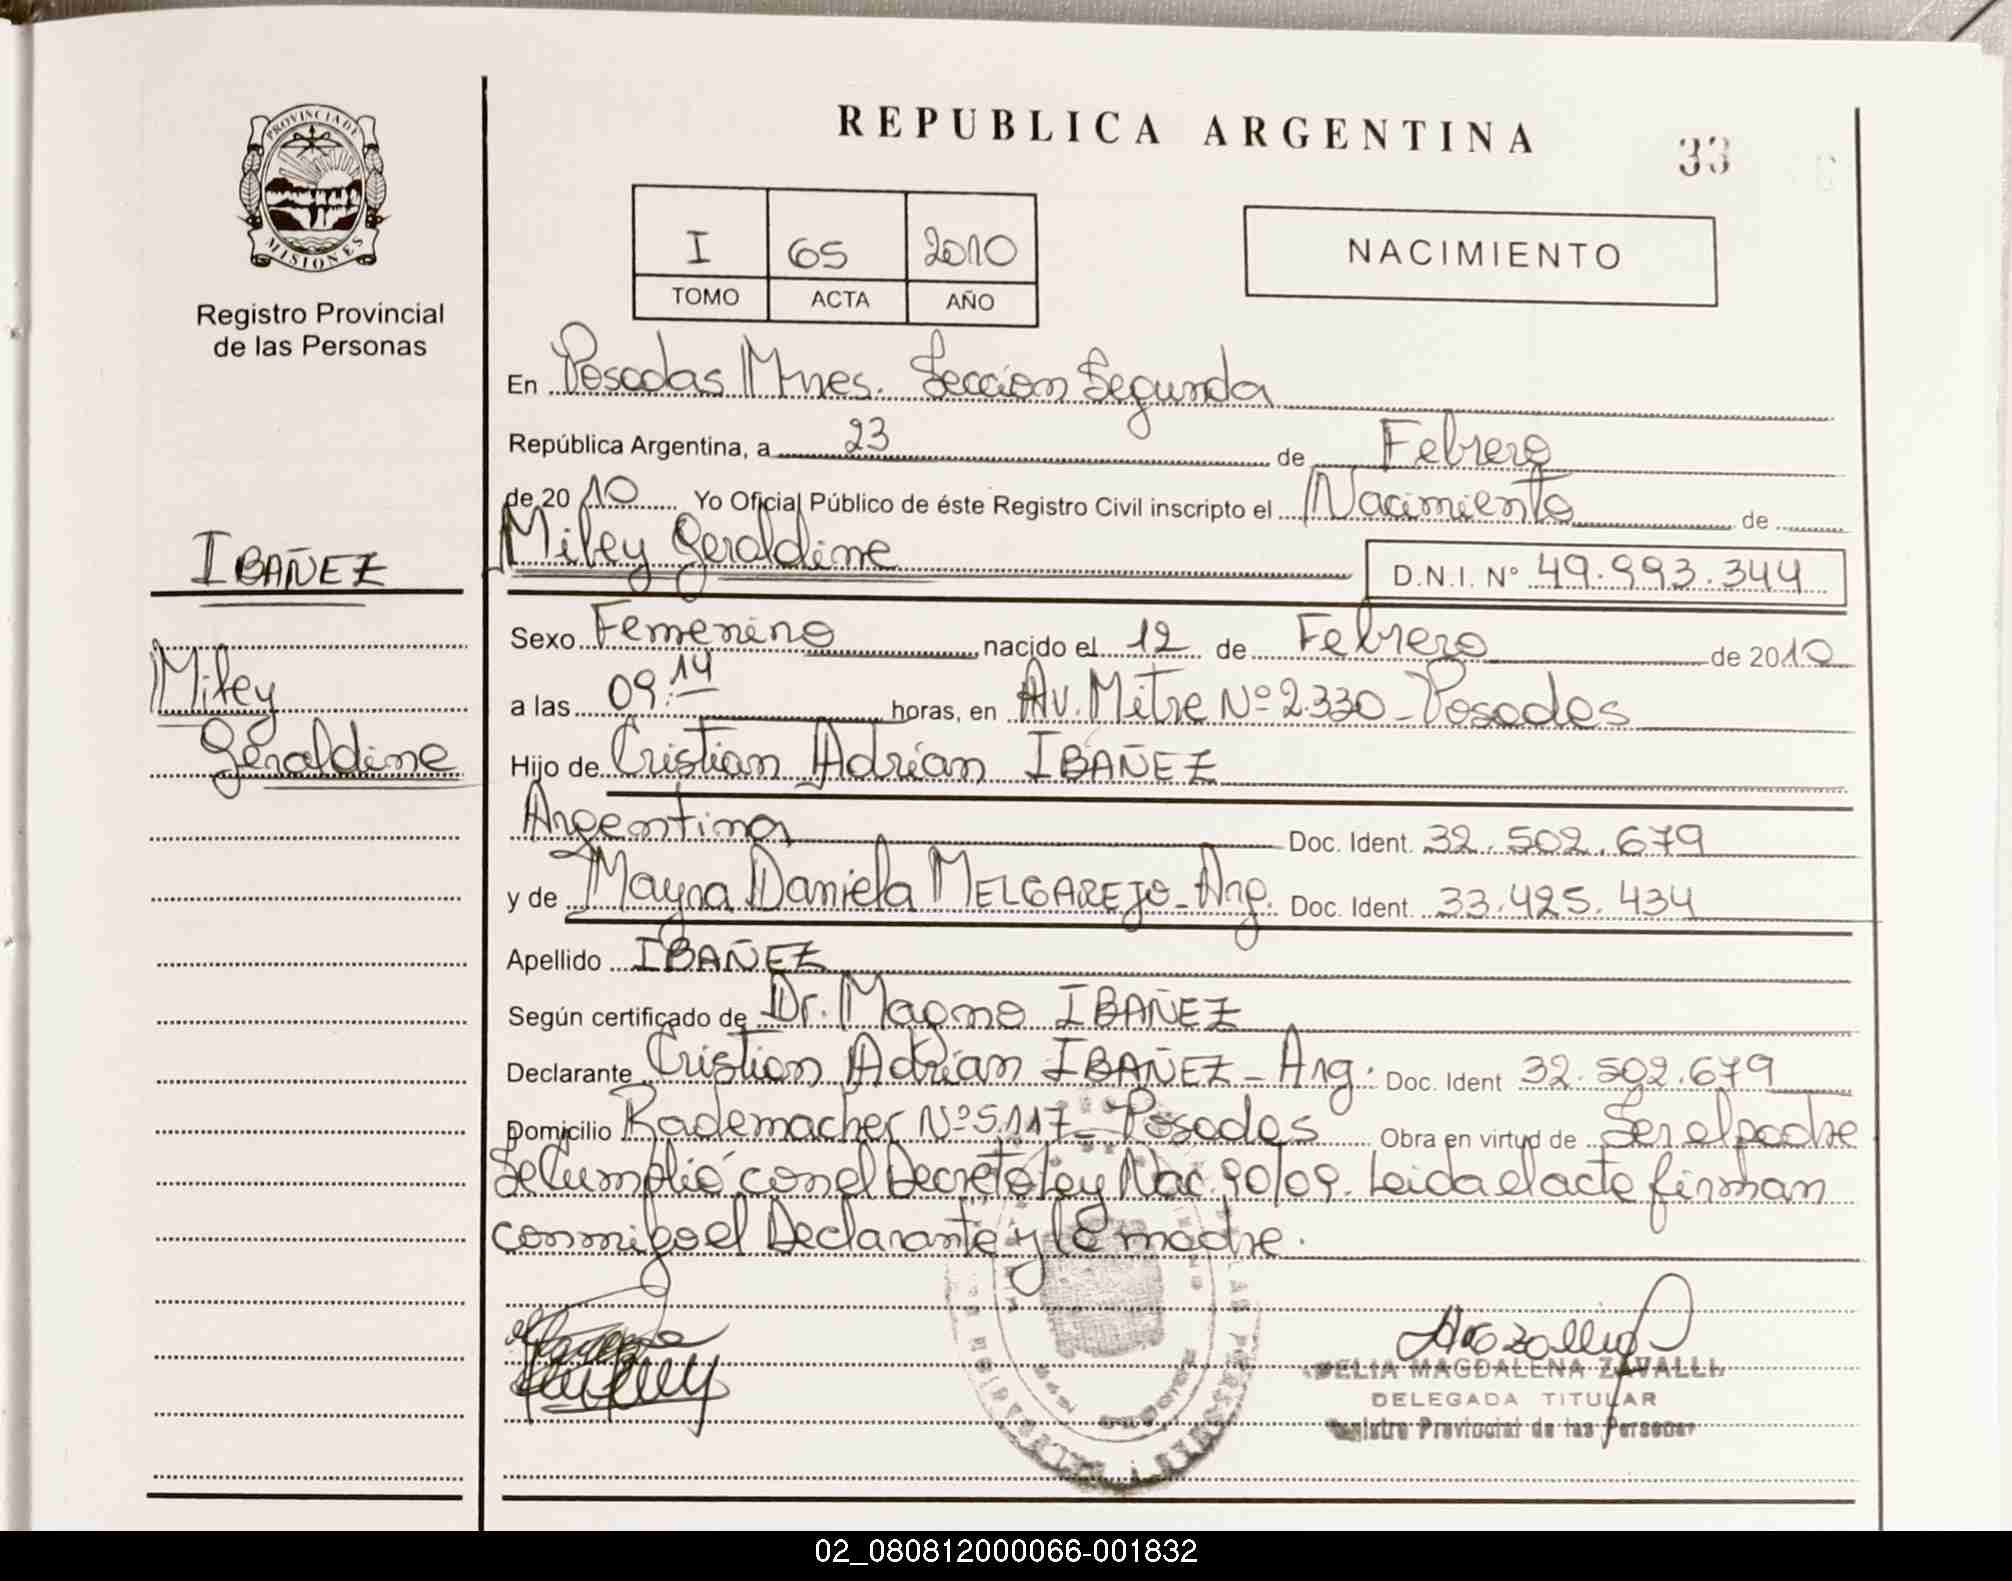 REPUBLICA ARGENTINA
33
PROVINCIA DE
MISIONES
Registro Provincial
de las Personas
I 65 2010
TOMO ACTA AÑO
NACIMIENTO
En Posadas Mnes. Seccion Segunda
República Argentina, a 23 de Febrero
de 2010 Yo Oficial Público de éste Registro Civil inscripto el Nacimiento de
Miley Geraldine D.N.I. Nº 49.993.344
IBAÑEZ
Miley
Geraldine
Sexo Femenino nacido el 12 de Febrero de 2010
a las 09:14 horas, en Av. Mitre Nº 2.330 - Posadas
Hijo de Cristian Adrian IBAÑEZ
Argentina Doc. Ident. 32.502.679
y de Mayra Daniela MELGAREJO - Arg. Doc. Ident. 33.425.434
Apellido IBAÑEZ
Según certificado de Dr. Magno IBAÑEZ
Declarante Cristian Adrian IBAÑEZ - Arg. Doc. Ident 32.502.679
Domicilio Rademacher Nº 5.117 - Posadas Obra en virtud de Ser el padre
Se Cumplió con el Decreto ley Nac. 90/09. Leida el acta firman
conmigo el Declarante y la madre.
DELIA MAGDALENA ZAVALLI
DELEGADA TITULAR
Registro Provincial de las Personas
02_080812000066-001832